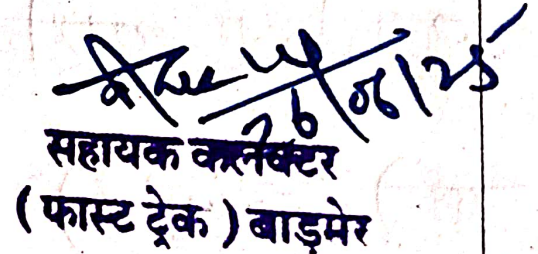 26/06/25
सहायक कलक्टर
( फास्ट ट्रेक ) बाड़मेर